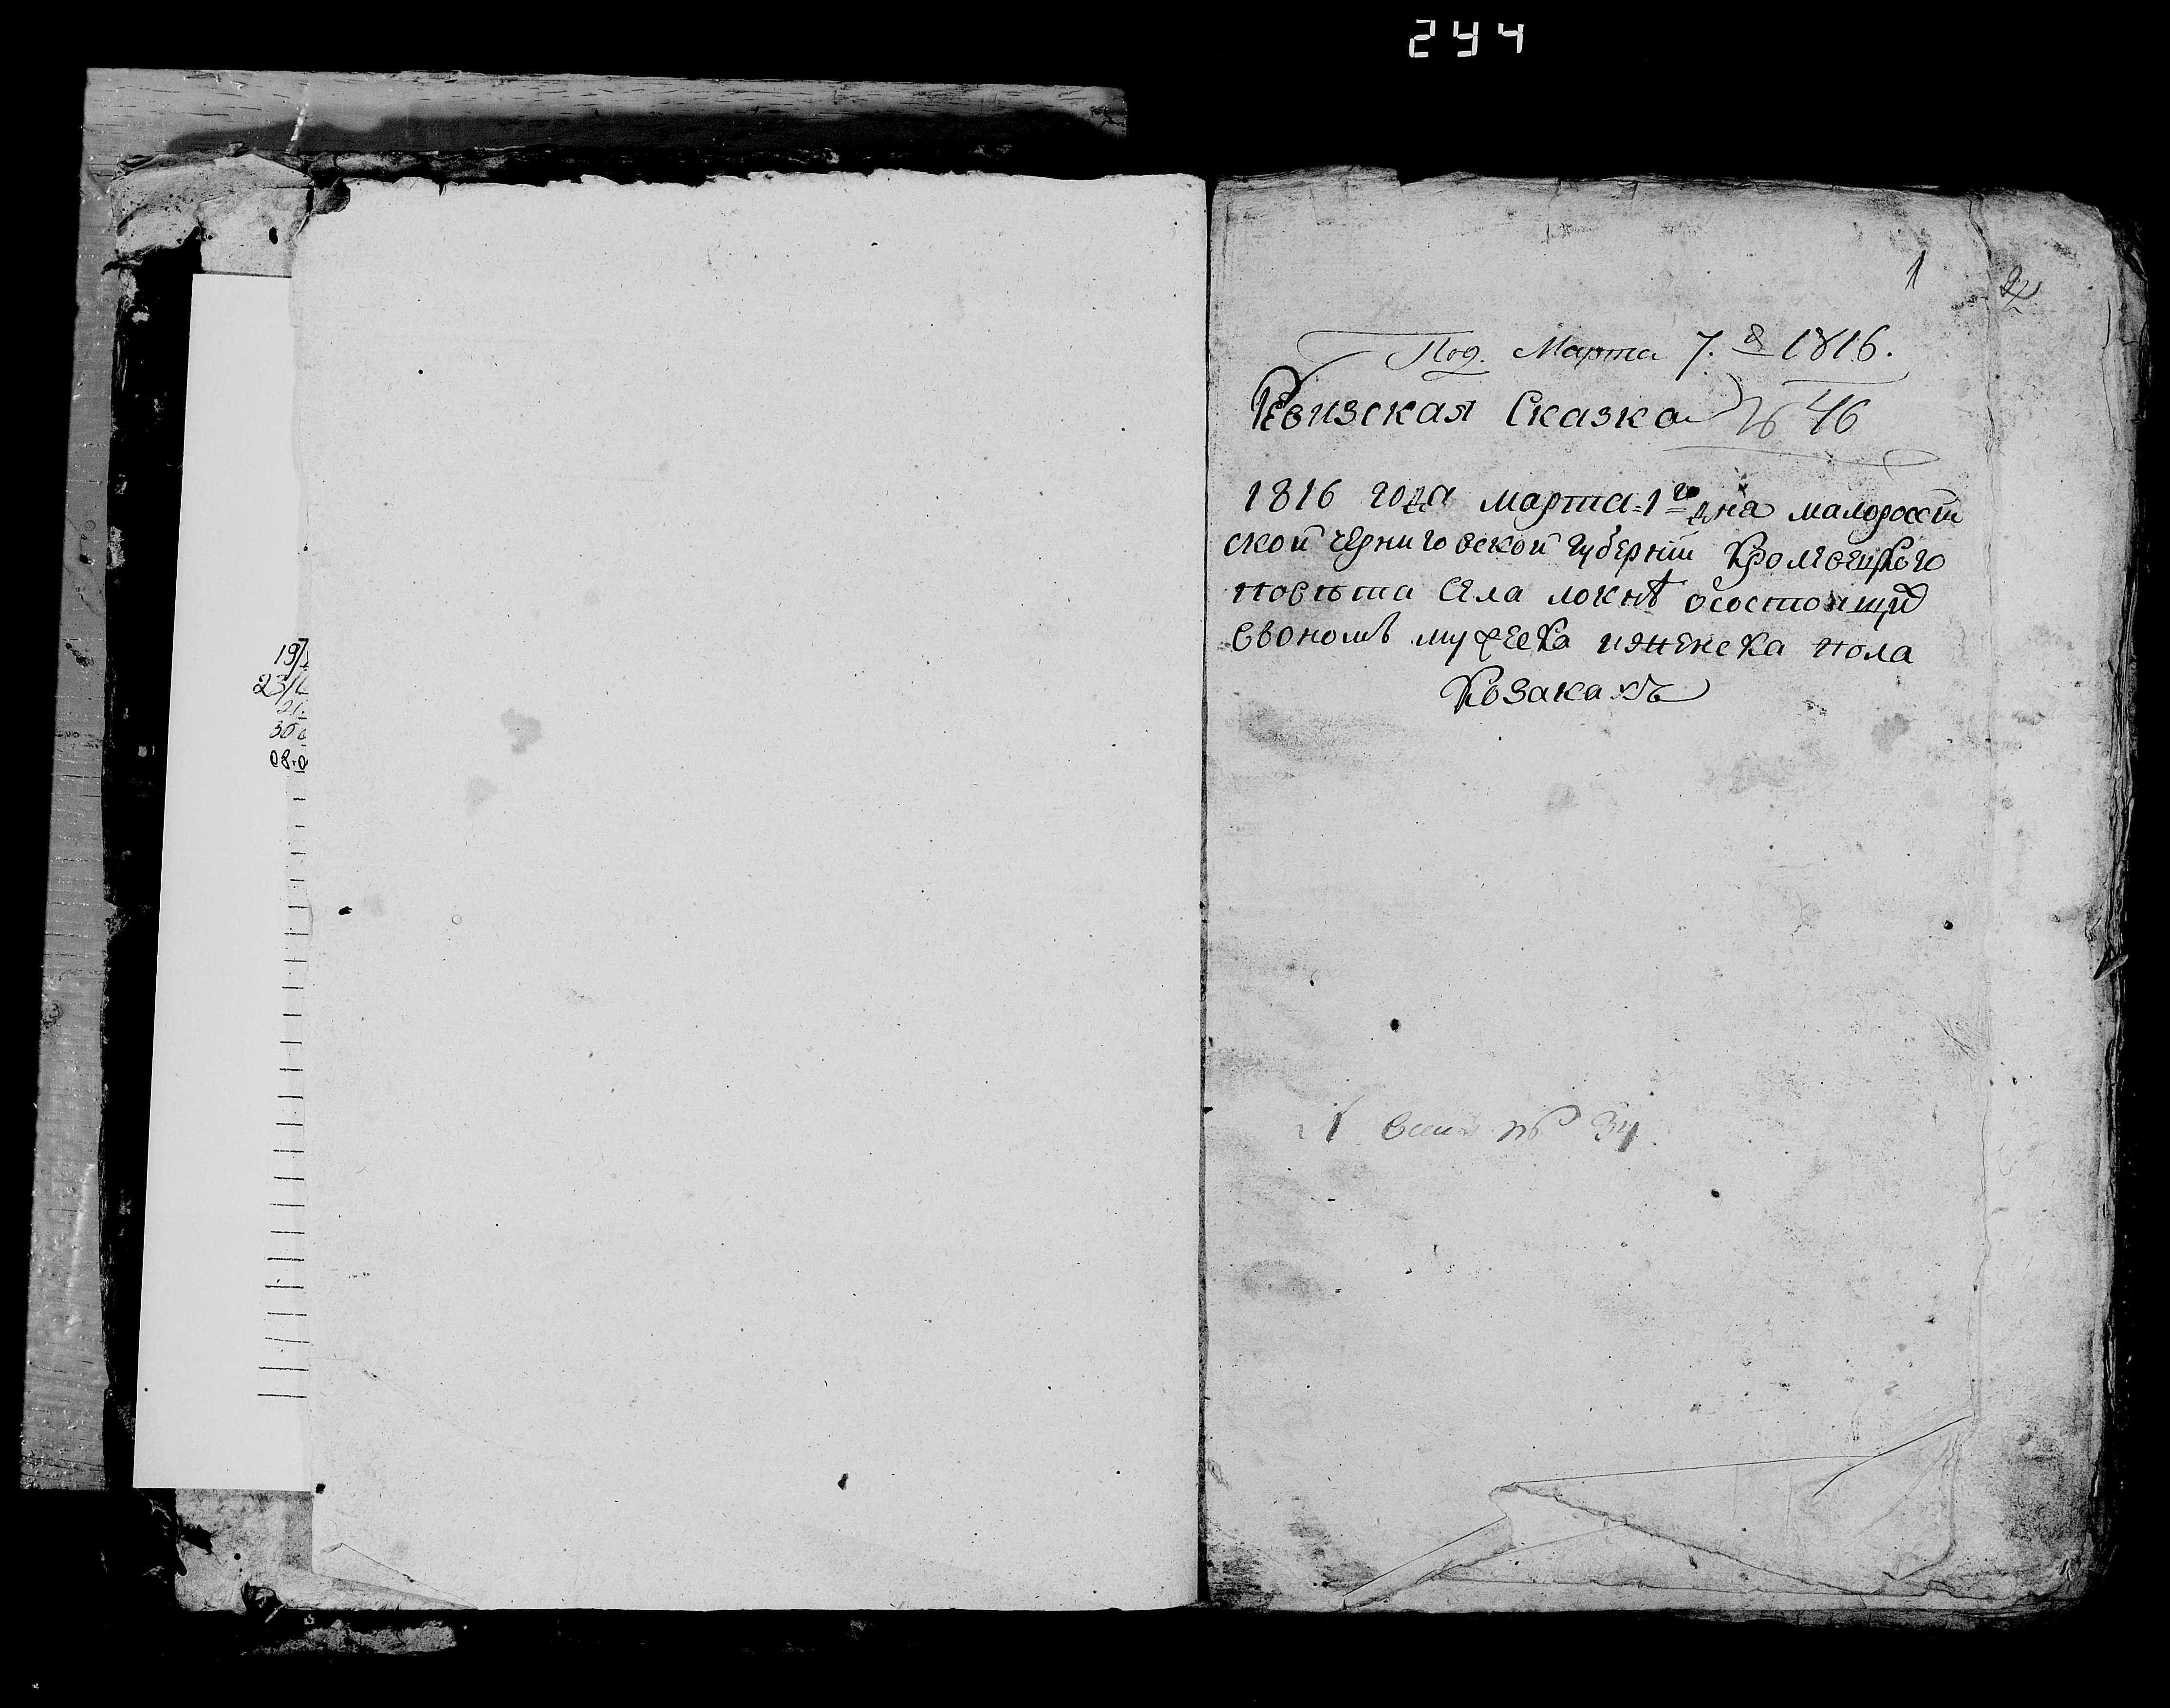 244
1
2
Под. Марта 7. д 1816.
Ревизская Сказка № 46
1816 года марта 1го дна малороссій
ской черниговской губерніи Кролевецкого
повѣта Села локнѣ осостоящих
Ввономъ мужеска иженска пола
Козакахъ
№ 34
19/
23/
21.
30
08.0